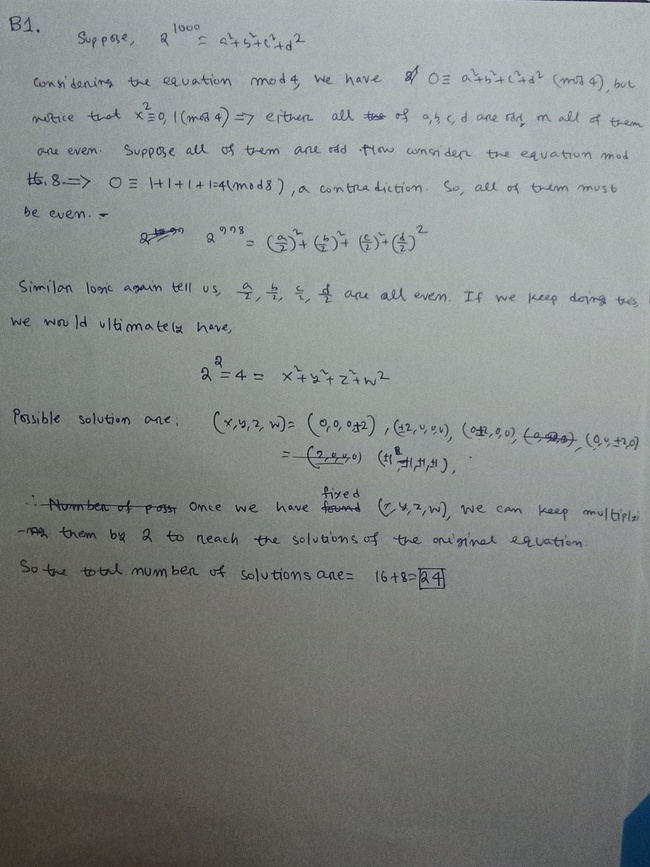 B1.
Suppose, 2^1000 = a²+b²+c²+d²
Considering the equation mod 4, we have 0 ≡ a²+b²+c²+d² (mod 4), but
notice that x² ≡ 0, 1 (mod 4) => either all of a, b, c, d are odd, or all of them
are even. Suppose all of them are odd. Now consider the equation mod
8. => 0 ≡ 1+1+1+1=4 (mod 8), a contradiction. So, all of them must
be even.
2^998 = (a/2)² + (b/2)² + (c/2)² + (d/2)²
Similar logic again tell us, a/2, b/2, c/2, d/2 are all even. If we keep doing this,
we would ultimately have,
2² = 4 = x²+y²+z²+w²
Possible solution are: (x,y,z,w) = (0,0,0,±2), (±2,0,0,0), (0,±2,0,0), (0,0,±2,0)
= (±1,±1,±1,±1),
Once we have fixed (x,y,z,w), we can keep multiplyi
-ng them by 2 to reach the solutions of the original equation.
So the total number of solutions are = 16+8= 24